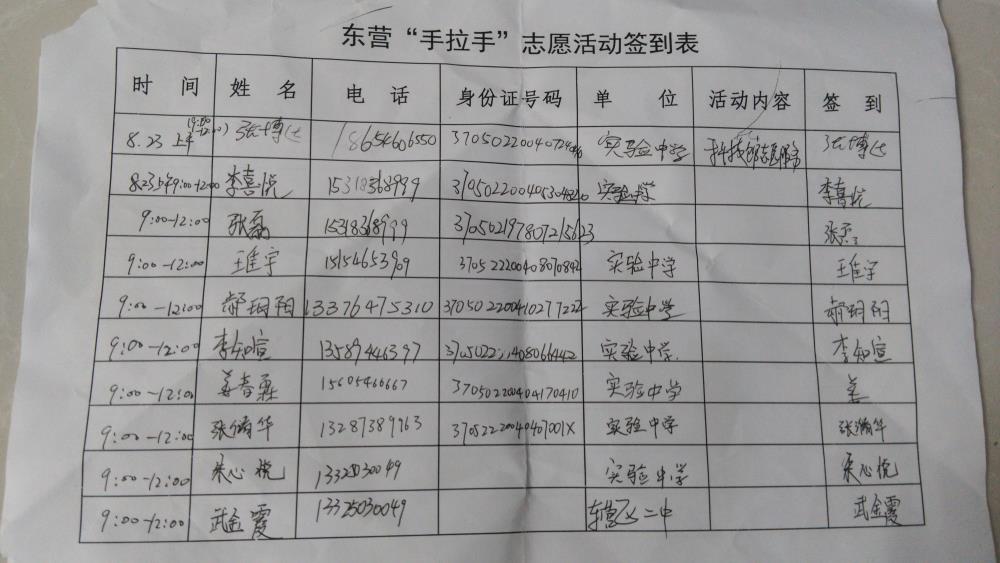 东营“手拉手”志愿活动签到表
时 间 姓 名 电 话 身份证号码 单 位 活动内容 签 到
8.23 上午 张博 18654606550 实验中学 张博
9:00-12:00 李喜悦 15318368999 实验中学 李喜悦
9:00-12:00 张磊 15318368999 370502197807215623 张磊
9:00-12:00 王佳宇 15154653909 370522200408070842 实验中学 王佳宇
9:00-12:00 郝玥阳 13376475310 实验中学 郝玥阳
9:00-12:00 李知宣 13589446397 实验中学 李知宣
9:00-12:00 姜春 15605460667 370502200404170410 实验中学 姜
9:00-12:00 张倩华 13287389963 37052220040407001X 实验中学 张倩华
9:00-12:00 心悦 13325030049 实验中学 心悦
9:00-12:00 武金霞 13325030049 二中 武金霞